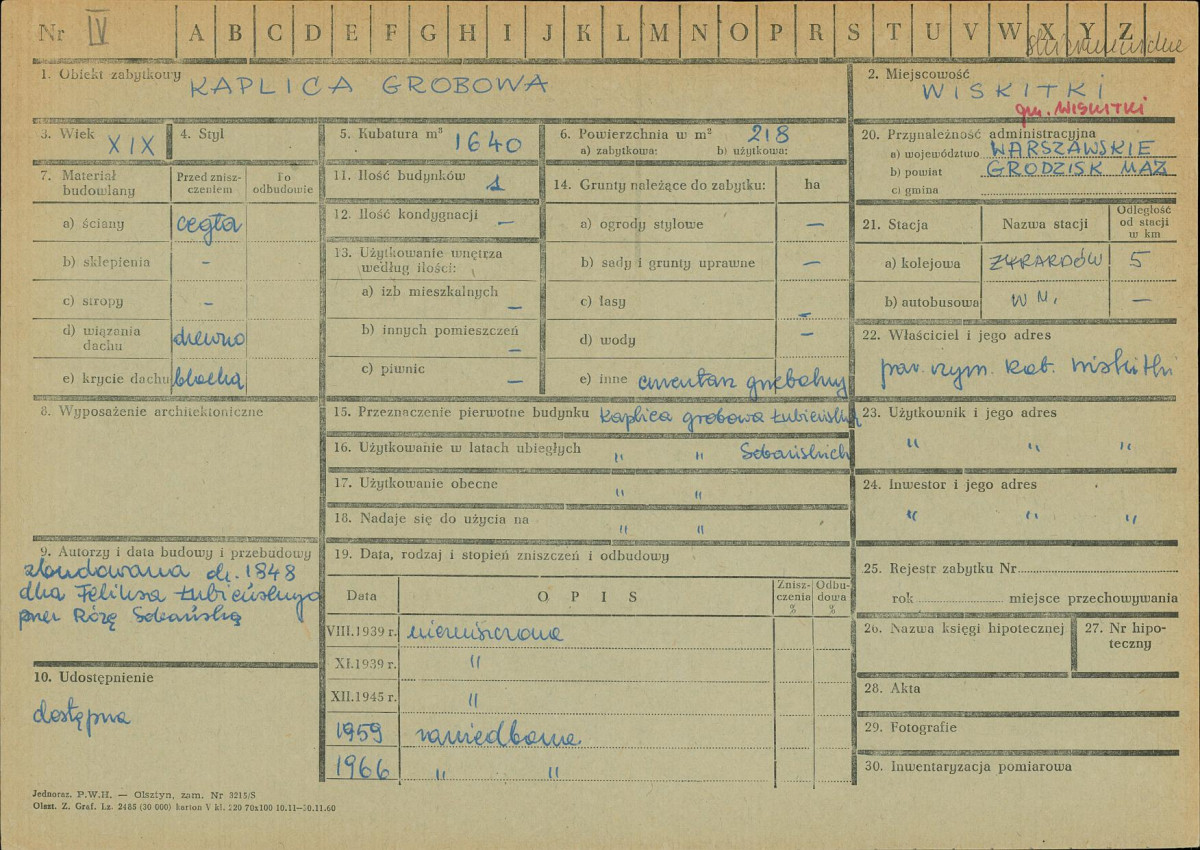 Nr IV A B C D E F G H I J K L M N O P R S T U V W X Y Z
skierniewickie
1. Obiekt zabytkowy KAPLICA GROBOWA
2. Miejscowość
WISKITKI
gm. WISKITKI
3. Wiek XIX
4. Styl
5. Kubatura m³ 1640
6. Powierzchnia w m² 218
a) zabytkowa: b) użytkowa:
20. Przynależność administracyjna
a) województwo WARSZAWSKIE
b) powiat GRODZISK MAZ
c) gmina
7. Materiał budowlany
Przed zniszczeniem
Po odbudowie
a) ściany cegła
b) sklepienia –
c) stropy –
d) wiązania dachu drewno
e) krycie dachu blacha
11. Ilość budynków 1
12. Ilość kondygnacji –
13. Użytkowanie wnętrza
według ilości:
a) izb mieszkalnych –
b) innych pomieszczeń –
c) piwnic –
14. Grunty należące do zabytku: ha
a) ogrody stylowe –
b) sady i grunty uprawne –
c) lasy –
d) wody –
e) inne cmentarz grzebalny
21. Stacja
Nazwa stacji
Odległość
od stacji
w km
a) kolejowa ŻYRARDÓW 5
b) autobusowa w m. –
22. Właściciel i jego adres
par. rzym. kat. Wiskitki
8. Wyposażenie architektoniczne
15. Przeznaczenie pierwotne budynku kaplica grobowa Łubieńskich
16. Użytkowanie w latach ubiegłych " " Sobańskich
17. Użytkowanie obecne " "
18. Nadaje się do użycia na " "
23. Użytkownik i jego adres
" " "
24. Inwestor i jego adres
" " "
9. Autorzy i data budowy i przebudowy
zbudowana ok. 1848
dla Feliksa Łubieńskiego
przez Różę Sobańską
10. Udostępnienie
dostępna
19. Data, rodzaj i stopień zniszczeń i odbudowy
Data OPIS Zniszczenia % Odbudowa %
VIII.1939 r. niezniszczona
XI.1939 r. "
XII.1945 r. "
1959 zaniedbana
1966 " "
25. Rejestr zabytku Nr
rok miejsce przechowywania
26. Nazwa księgi hipotecznej
27. Nr hipoteczny
28. Akta
29. Fotografie
30. Inwentaryzacja pomiarowa
Jednoraz. P.W.H. — Olsztyn, zam. Nr 3215/S
Olszt. Z. Graf. Lz. 2485 (30 000) karton V kl. 220 70x100 10.11—30.11.60